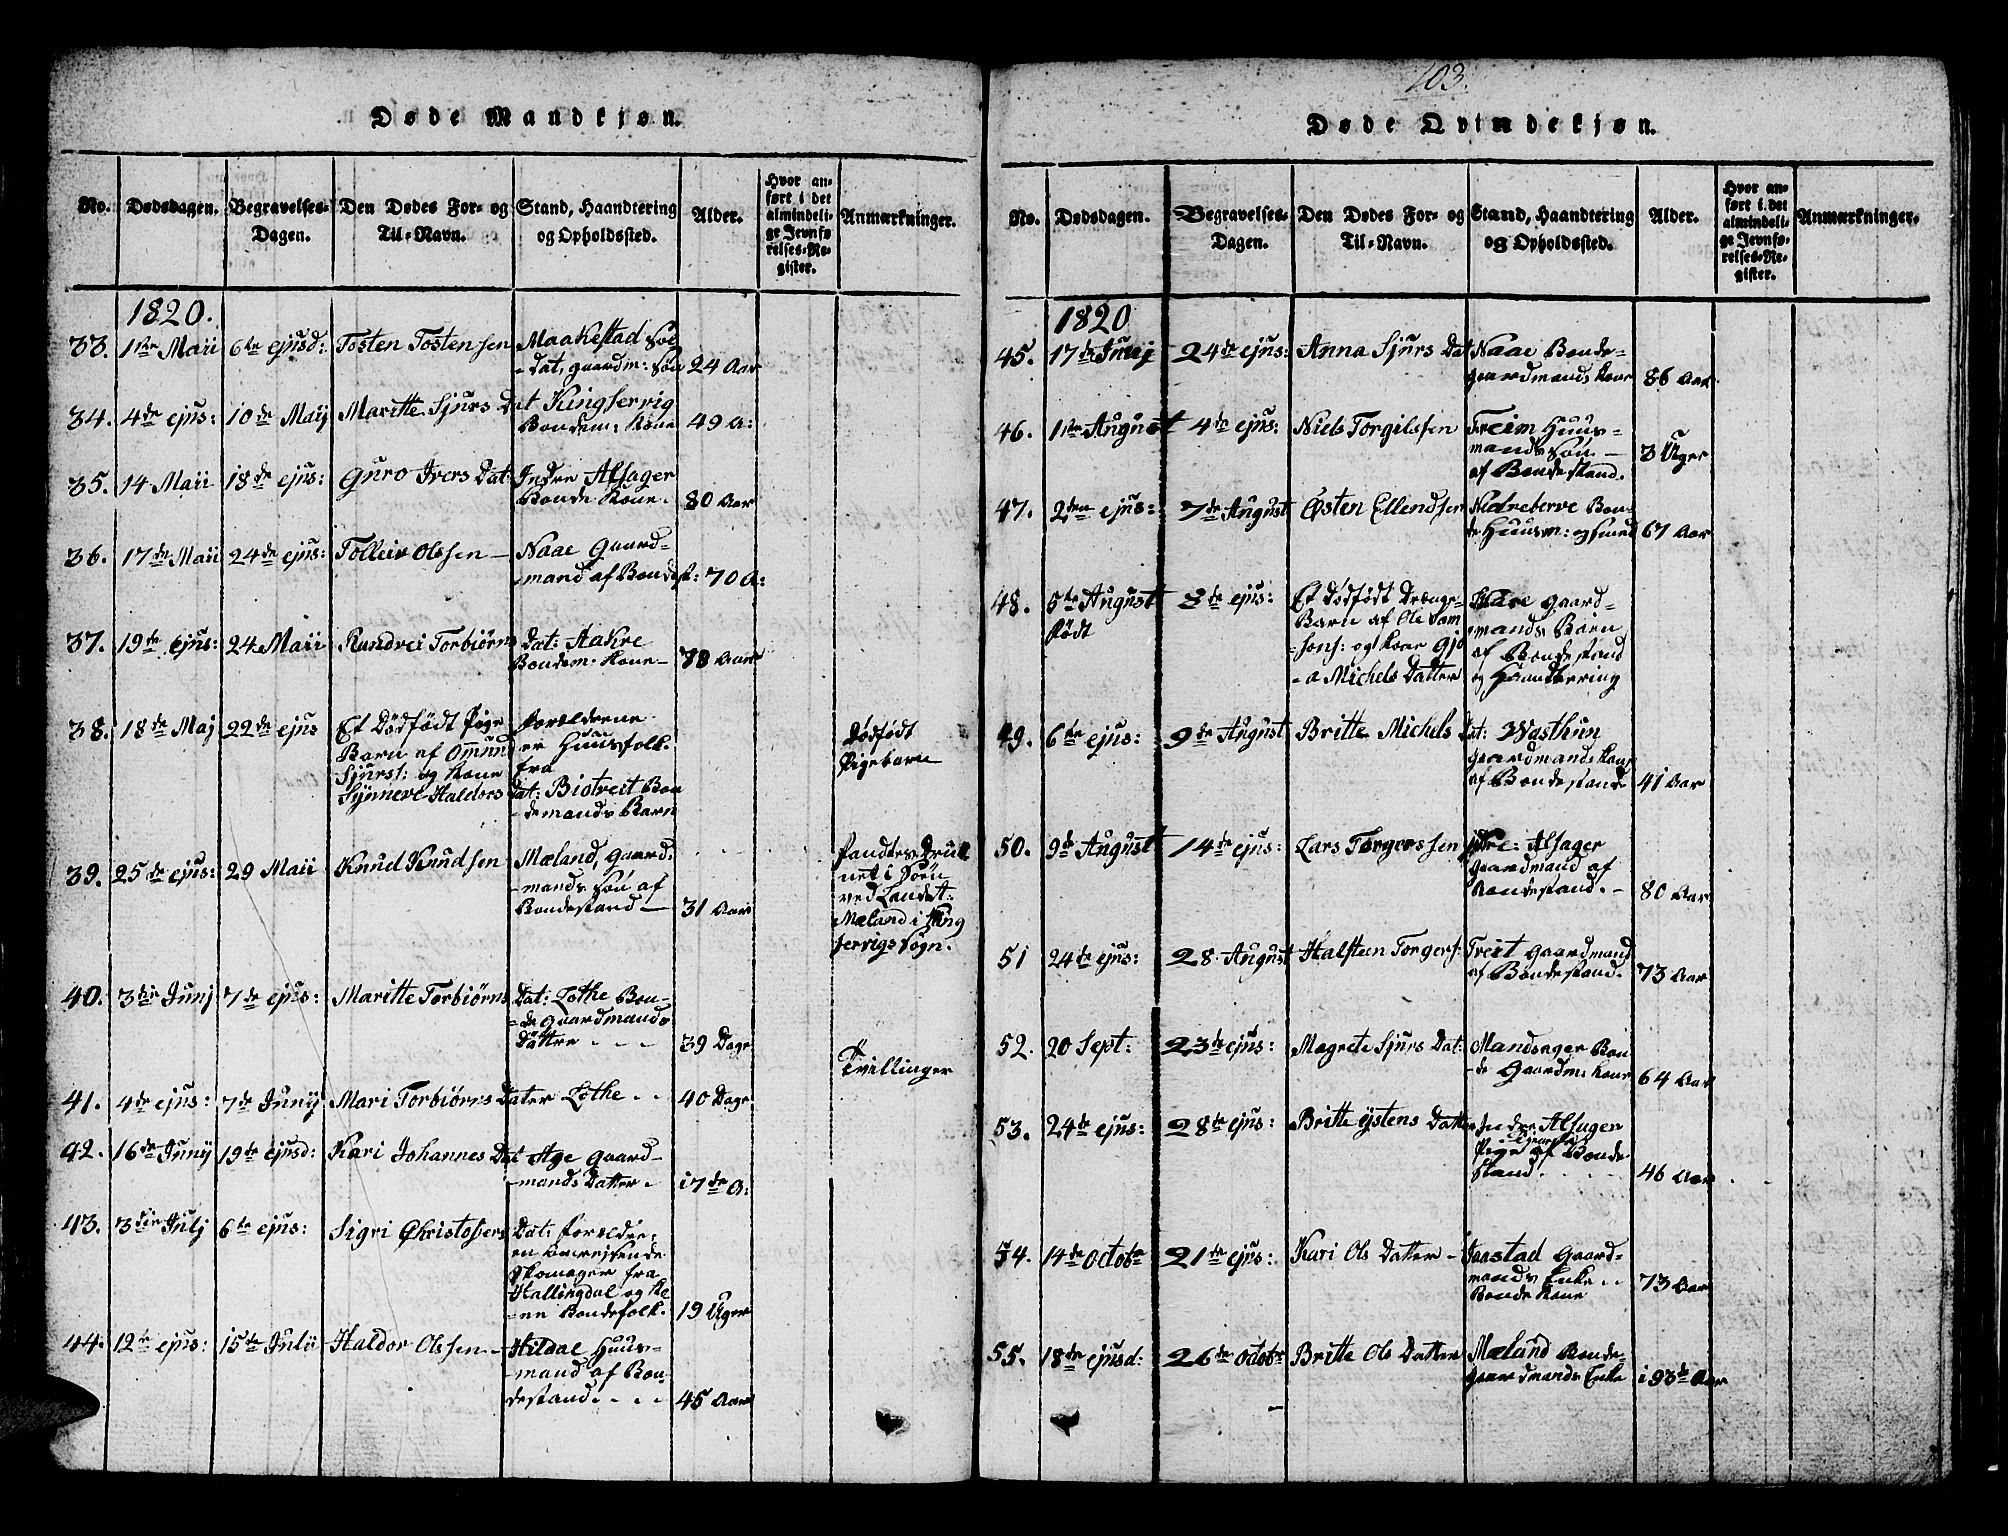 Døde Mandkjøn.
No.
Dødsdagen.
Begravelses-
Dagen.
Den Dødes For- og
Til-Navn.
Stand, Haandtering
og Opholdssted.
Alder.
Hvor an-
ført i det
almindeli-
ge Jevnfø-
relses-Re-
gister.
Anmærkninger.
1820.
33. 1ste Maii 6te ejusd: Tosten Tostensen Maakestad Sol-
-dat, gaardm: Søn 24 Aar
34. 4de ejus: 10de Maij Maritte Sjurs Dat Kingservig
Bondem: Kone 49 A:
35. 14 Maii 18de ejus: Guro Ivers Dat: Indre Alsager
Bonde Kone. 80 Aar
36. 17de Maii 24de ejus: Tolleiv Olssen — Naae Gaard-
-mand af Bondest: 70 A:
37. 19de ejus: 24 Maii Randvei Torbiørns Dat: Aakre
Bondem: Kone — Aar
38. 18de Maj 22de ejus Et Dødfødt Pige
Barn af Omund
Sjurss: og Kone
Synneve Haldors Dat:
Forældrene
er Huusfolk
fra
Bistveit Bon
-demands Barn
Dødfødt
Pigebarn
39. 25de ejus: 29 Maii Knud Knudsen Mæland, Gaard-
-mands Søn af
Bondestand — 31 Aar
Fandtes Druk
net i Søen
ved Landet:
Mæland i King
servigs Sogn.
40. 3die Junj 7de ejus: Maritte Torbiørns Dat: Lothe Bon-
-de Gaardmands
Datter . . . 39 Dage
Tvillinger
41. 4de ejus: 7de Junij Mari Torbiørns Datter Lothe . . 40 Dage
42. 16de Junij 19de ejusd: Kari Johannes Dat Age Gaard-
-mands Datter . 17de A:
43. 3die Julj 6te ejus: Sigri Christofers Dat: Forældre:
en omrejsende
Skomager fra
Hallingdal og Ko
-ne Bondefolk. 19 Uger
44. 12te ejus: 15te Julii Haldor Olssen — Hildal Huus-
-mand af Bon-
destand . . . 45 Aar
103.
Døde Qvindekjøn.
No.
Dødsdagen.
Begravelses-
Dagen.
Den Dødes For- og
Til-Navn.
Stand, Haandtering
og Opholdssted.
Alder.
Hvor an-
ført i det
almindeli-
ge Jevnfø-
relses-Re-
gister.
Anmærkninger.
1820
45. 17de Junij 24de ejus: Anna Sjurs Dat Naae Bonde-
gaardmands Kone 86 Aar.
46. 1ste August 4de ejus: Niels Torgilssen Freim Huus-
mands Søn —
af Bondestand. 3 Uger
47. 2den ejus: 7de August Østen Ellendsen Nedreberve Bon-
de Huusm: og Smed 67 Aar
48. 5te August
Født
8de ejus: Et Dødfødt Drenge-
Barn af Ole Sam
-sons: og Kone Gjo
-a Michels Datter
Gaard-
-mands Barn
af Bondestand
og Haanterring
49. 6te ejus: 9de August Britte Michels Dat: Wasthun
Gaardmands Kone
af Bondestande 41 Aar
50. 9de August 14de ejus: Lars Torgerssen Idre: Alsager
Gaardmand af
Bondestand. — 80 Aar
51 24de ejus: 28 August Halsteen Torgers: Treit Gaardmand
af Bondestand. 73 Aar
52. 20 Sept: 23de ejus: Magrete Sjurs Dat: Mandsager Bon
-de Gaardm: Kone 64 Aar
53. 24de ejus: 28de ejus: Britte Ystens Datter Indre Alsager
Pige af Bonde
Stand. 46 Aar
54. 14de Octobr 21de ejus: Kari Ols Datter — Jaastad Gaard-
mands Enke . .
Bonde Kone 73 Aar
55. 18de ejusd: 26de Octobr. Britte Ols Datter Mæland Bonde-
gaardmands Enke i 93de Aar